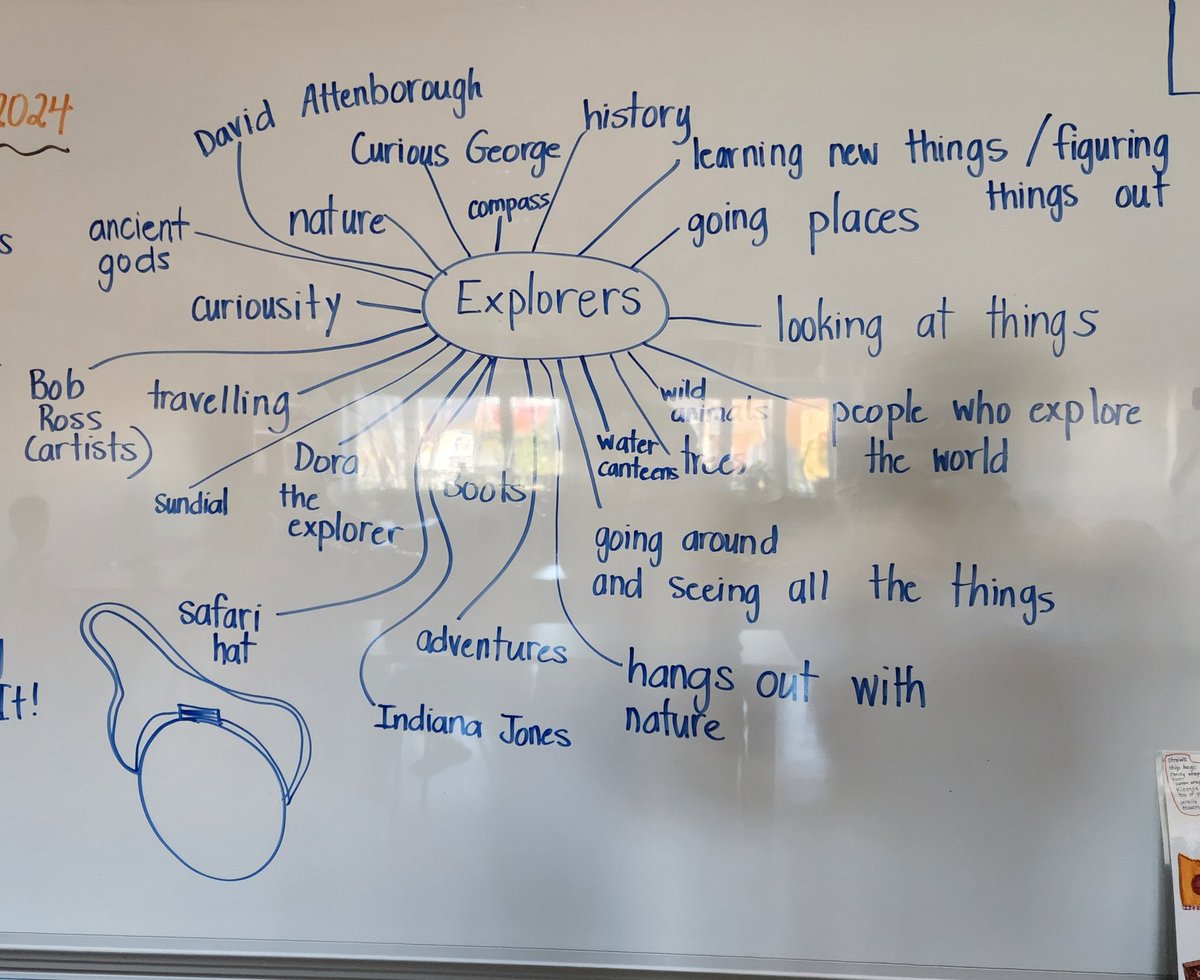 2024
David Attenborough
history
Curious George
learning new things / figuring
things out
compass
nature
going places
ancient
gods
s
curiousity
Explorers
looking at things
Bob
Ross
(artists)
travelling
wild
animals
people who explore
the world
water
canteens
trees
Dora
the
explorer
Boots
Sundial
going around
and seeing all the things
safari
hat
adventures
hangs out with
nature
It!
Indiana Jones
straws